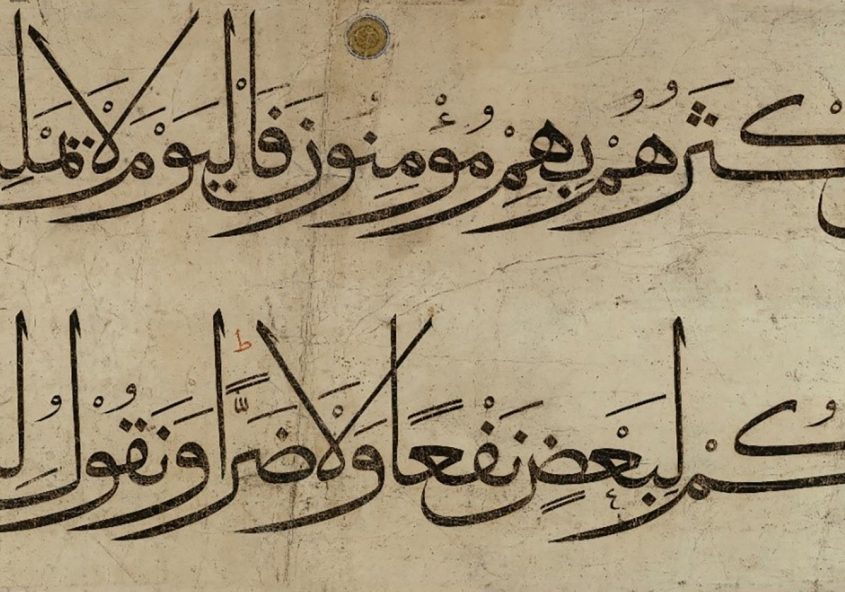 كثرهُم بِهِمْ مُؤْمِنُونَ فَالْيَوْمَ لَا يَمْلِـ
كُمْ لِبَعْضٍ نَفْعًا وَلَا ضَرًّا ط وَنَقُولُ لِلـ